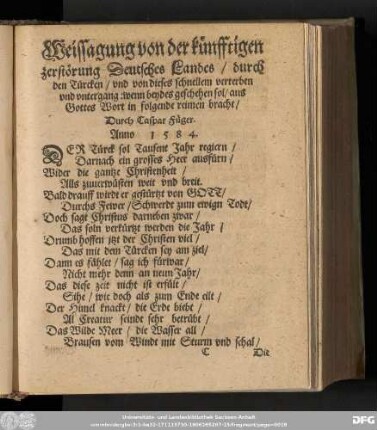 Weissagung von der künfftigen
zerstörung Deutsches Landes / durch
den Türcken / vnd von dieses schnellem verterben
vnd vntergang: wenn beydes geschehen sol / aus
Gottes Wort in folgende reimen bracht /
Durch Caspar Füger.
Anno 1584.
DER Türck sol Tausent Jahr regiern /
Darnach ein grosses Heer ausfürn /
Wider die gantze Christenheit /
Alls zuuerwüsten weit vnd breit.
Bald drauff wirdt er gestürtzt von GOTT /
Durchs Fewer / Schwerdt zum ewign Todt /
Doch sagt Christus darneben zwar /
Das soln verkürtzt werden die Jahr /
Drumb hoffen jtzt der Christen viel /
Das mit dem Türcken sey am ziel /
Dann es fählet / sag ich fürwar /
Nicht mehr denn an neun Jahr /
Das diese zeit nicht ist erfült /
Sihe / wie doch als zum Ende eilt /
Der Himel knackt / die Erde biebt /
All Creatur seindt sehr betrübt /
Das Wilde Meer / die Wasser all /
Brausen vom Windt mit Sturm vnd schal /
C Die
Universitäts- und Landesbibliothek Sachsen-Anhalt
DFG